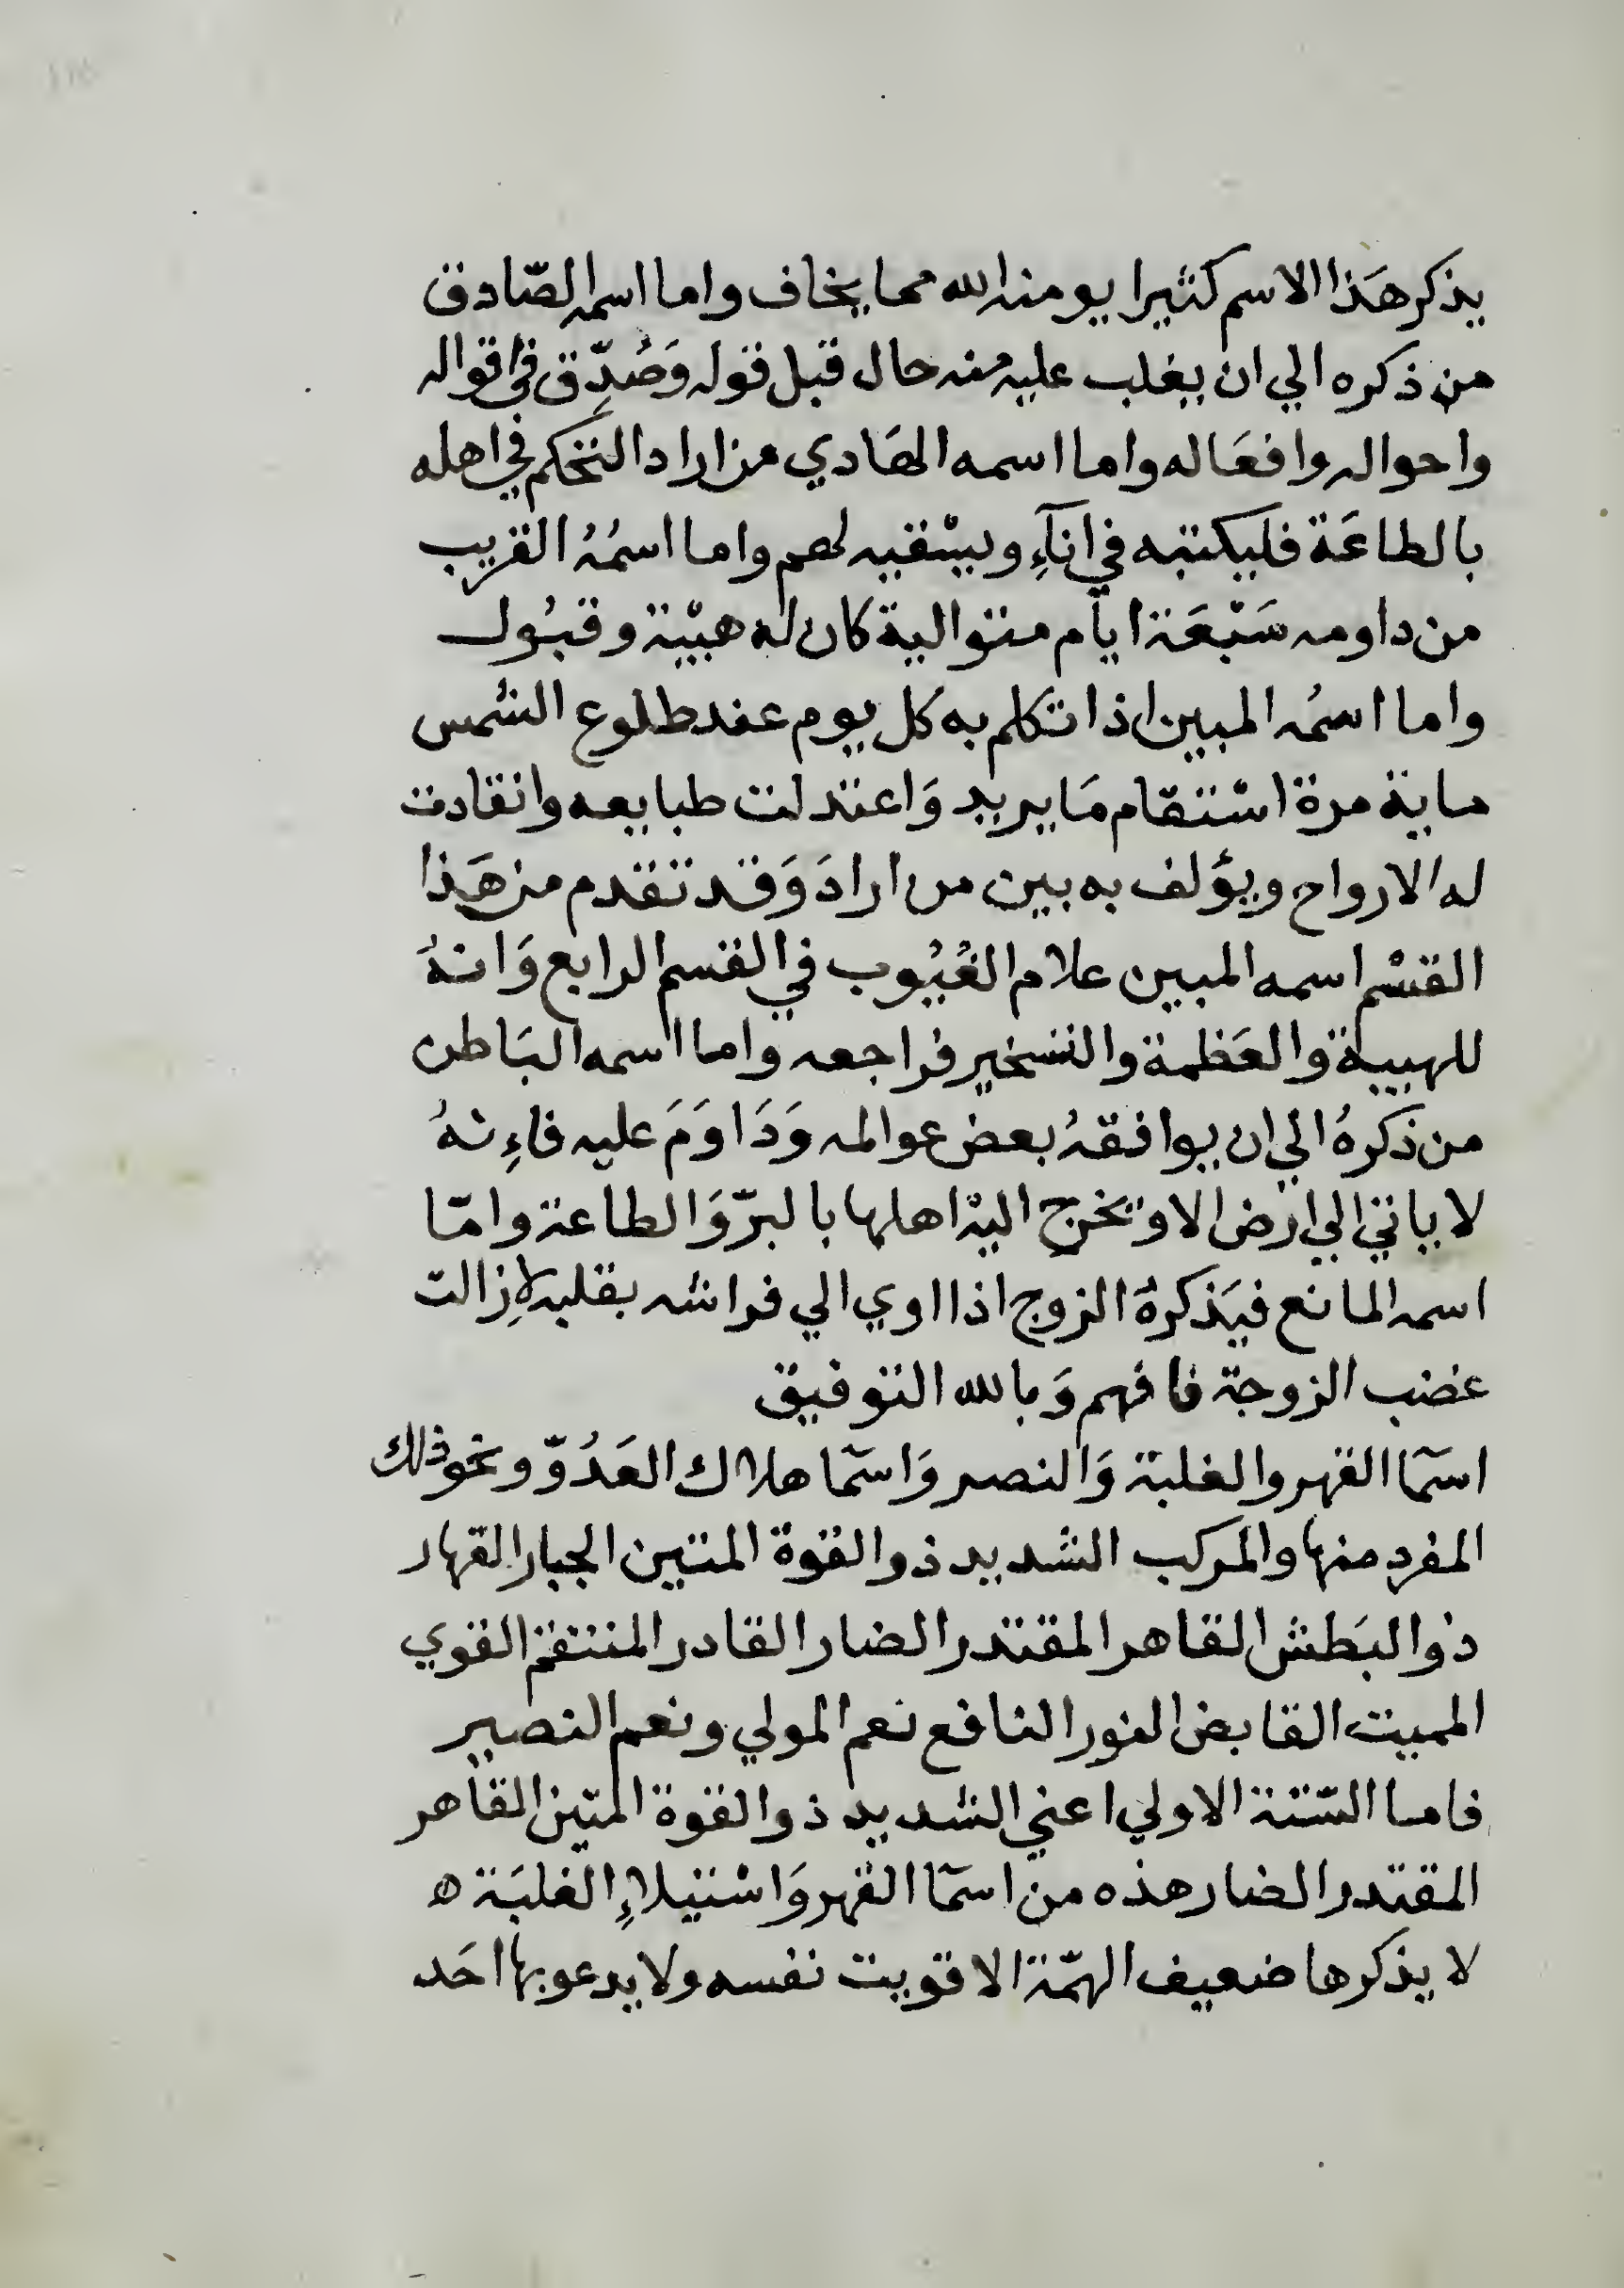 يذكر هَذا الاسم كثيرا يومنه الله مما يخاف واما اسمه الصّادق
من ذكره الي ان يغلب عليه منه حال قبل قوله وَصُدِّق في اقواله
واحواله وافعَاله واما اسمه الهَادي من اراد التحكم في اهله
بالطاعَة فليكتبه في انآءِ ويسْقيه لهم واما اسمُهُ القريب
من داومه سَبْعَة ايام متوالية كان له هيْبة وقبُول
واما اسمُه المبين اذا تكلم به كل يوم عند طلوع الشمس
ماية مرة اسْتقام مَا يريد وَاعتدلت طبايعه وانقادت
له الارواح ويؤلف به بين من ارادَ وَقد تقدم من هَذا
القسْم اسمه المبين علام الغُيُوب في القسم الرابع وَانهُ
للهيبة والعَظمة والتسخير فراجعه واما اسمه البَاطن
من ذكرهُ الي ان يوافقهُ بعض عوالمه وَدَاوَمَ عليه فاءِنهُ
لا ياتي الي ارض الا ويخرج اليهْ اهلها بالبرّ وَالطاعة وامّا
اسمه المانع فيَذكرهُ الزوج اذا اوي الي فراشه بقلبه لاِزالت
غضب الزوجة فافهم وَبالله التوفيق
اسمآ القهر والغلبة وَالنصر وَاسمآ هلاك العَدُوّ ونحو ذلك
المفرد منها والمركب الشديد ذوا القوة المتين الجبار القهار
ذوا البَطش القاهر المقتدر الضار القادر المنتقم القوي
المميت القابض النور النافع نعم المولي ونعم النصير
فاما السّتة الاولي اعني الشديد ذوا القوة المتين القاهر
المقتدر الضار هذه من اسمآ القهر وَاسْتيلاءِ الغلبَة ه
لا يذكرها ضعيف الهمّة الا قويت نفسه ولا يدعو بها احَد